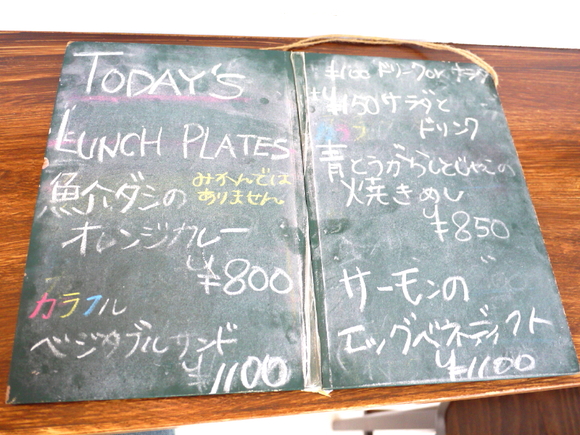 TODAY'S
LUNCH PLATES
魚介ダシの
みかんでは
ありません。
オレンジカレー
¥800
カラフル
ベジタブルサンド
¥1100
¥100 ドリンクor サラダ
¥150 サラダと
ドリンク
青とうがらしとじゃこの
焼きめし
¥850
サーモンの
エッグベネディクト
¥1100